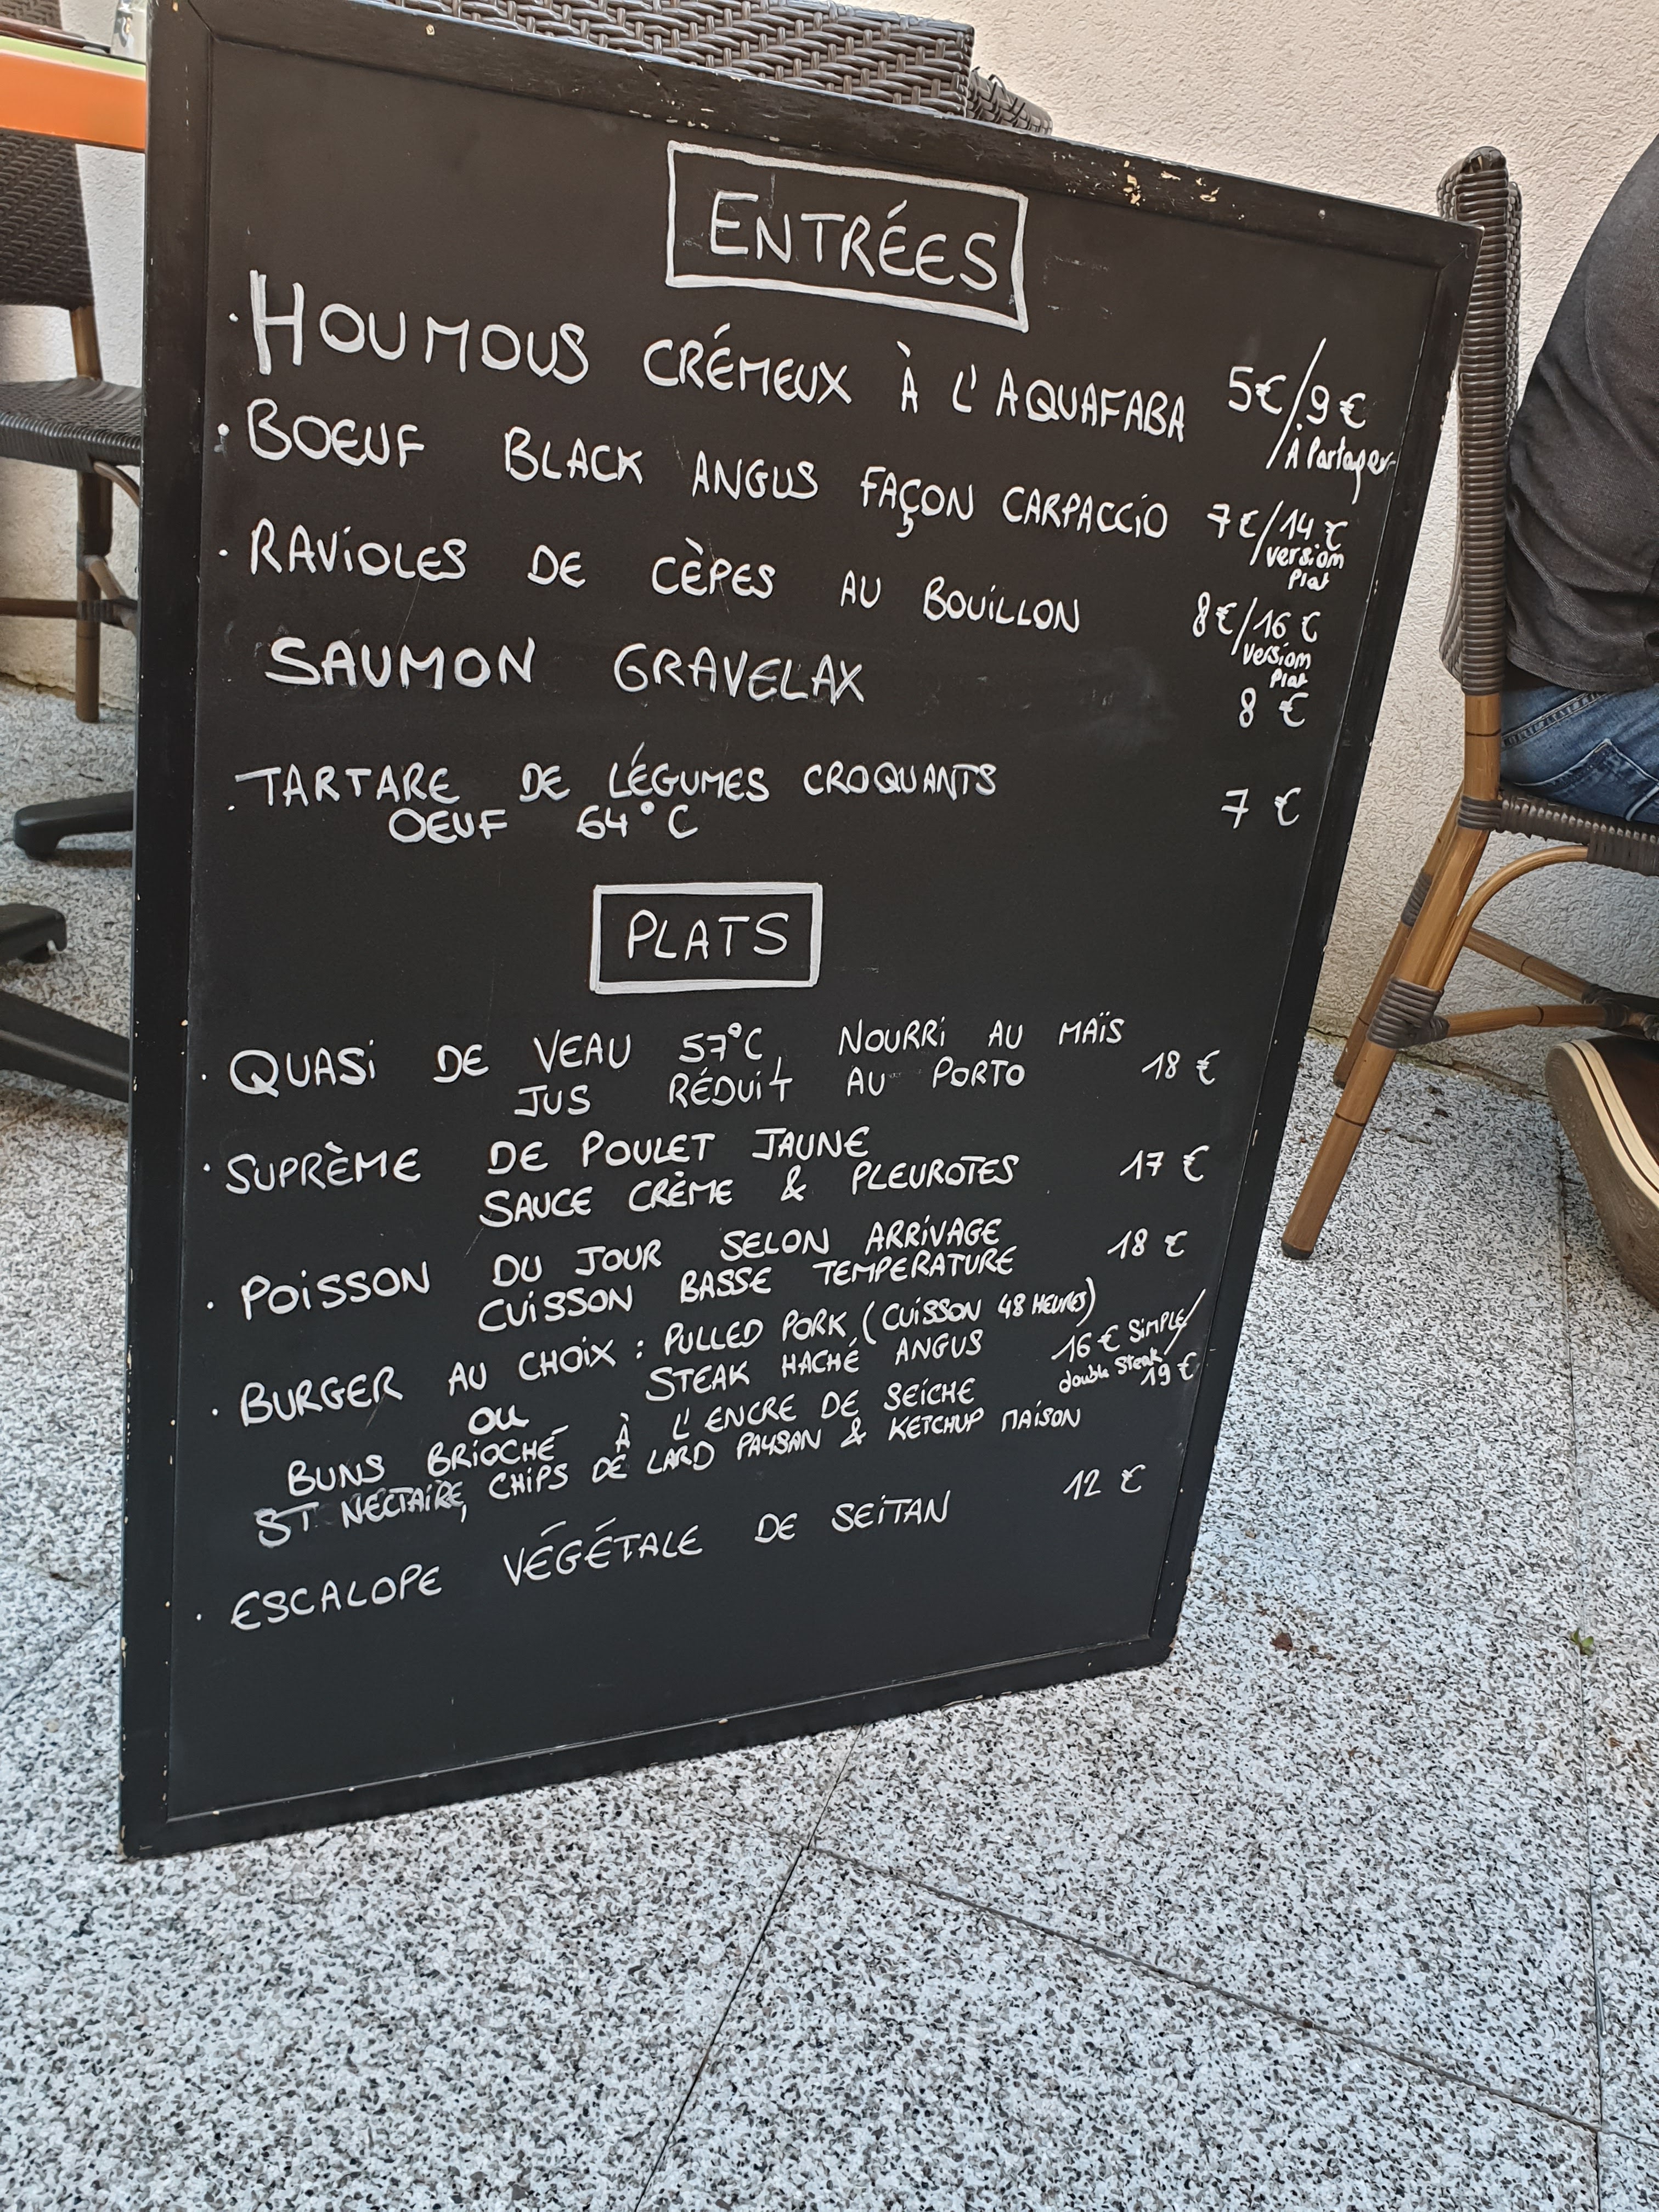 ENTRÉES
· HOUMOUS CRÉMEUX À L'AQUAFABA 5€/9€
À Partager
· BOEUF BLACK ANGUS FAÇON CARPACCIO 7€/14€
version
Plat
· RAVIOLES DE CÈPES AU BOUILLON 8€/16€
version
Plat
SAUMON GRAVELAX 8 €
· TARTARE DE LÉGUMES CROQUANTS 7 €
OEUF 64°C
PLATS
· QUASI DE VEAU 57°C, NOURRI AU MAÏS 18 €
JUS RÉDUIT AU PORTO
· SUPRÈME DE POULET JAUNE 17 €
SAUCE CRÈME & PLEUROTES
· POISSON DU JOUR SELON ARRIVAGE 18 €
CUISSON BASSE TEMPERATURE
· BURGER AU CHOIX : PULLED PORK (CUISSON 48 HEURES)
OU STEAK HACHÉ ANGUS 16 € SIMPLE/
double Steak 19 €
BUNS BRIOCHÉ À L'ENCRE DE SEICHE
ST NECTAIRE, CHIPS DE LARD PAYSAN & KETCHUP MAISON
· ESCALOPE VÉGÉTALE DE SEITAN 12 €